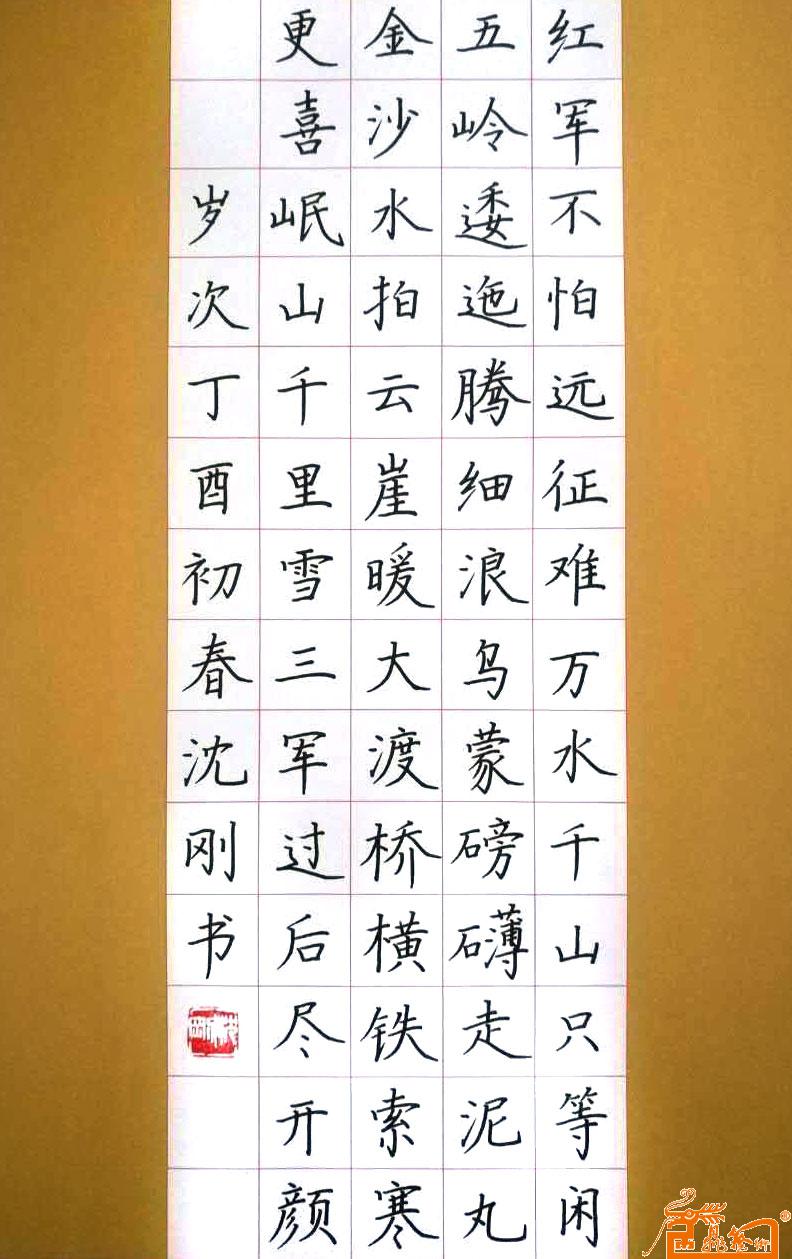 红军不怕远征难万水千山只等闲
五岭逶迤腾细浪乌蒙磅礴走泥丸
金沙水拍云崖暖大渡桥横铁索寒
更喜岷山千里雪三军过后尽开颜
岁次丁酉初春沈刚书